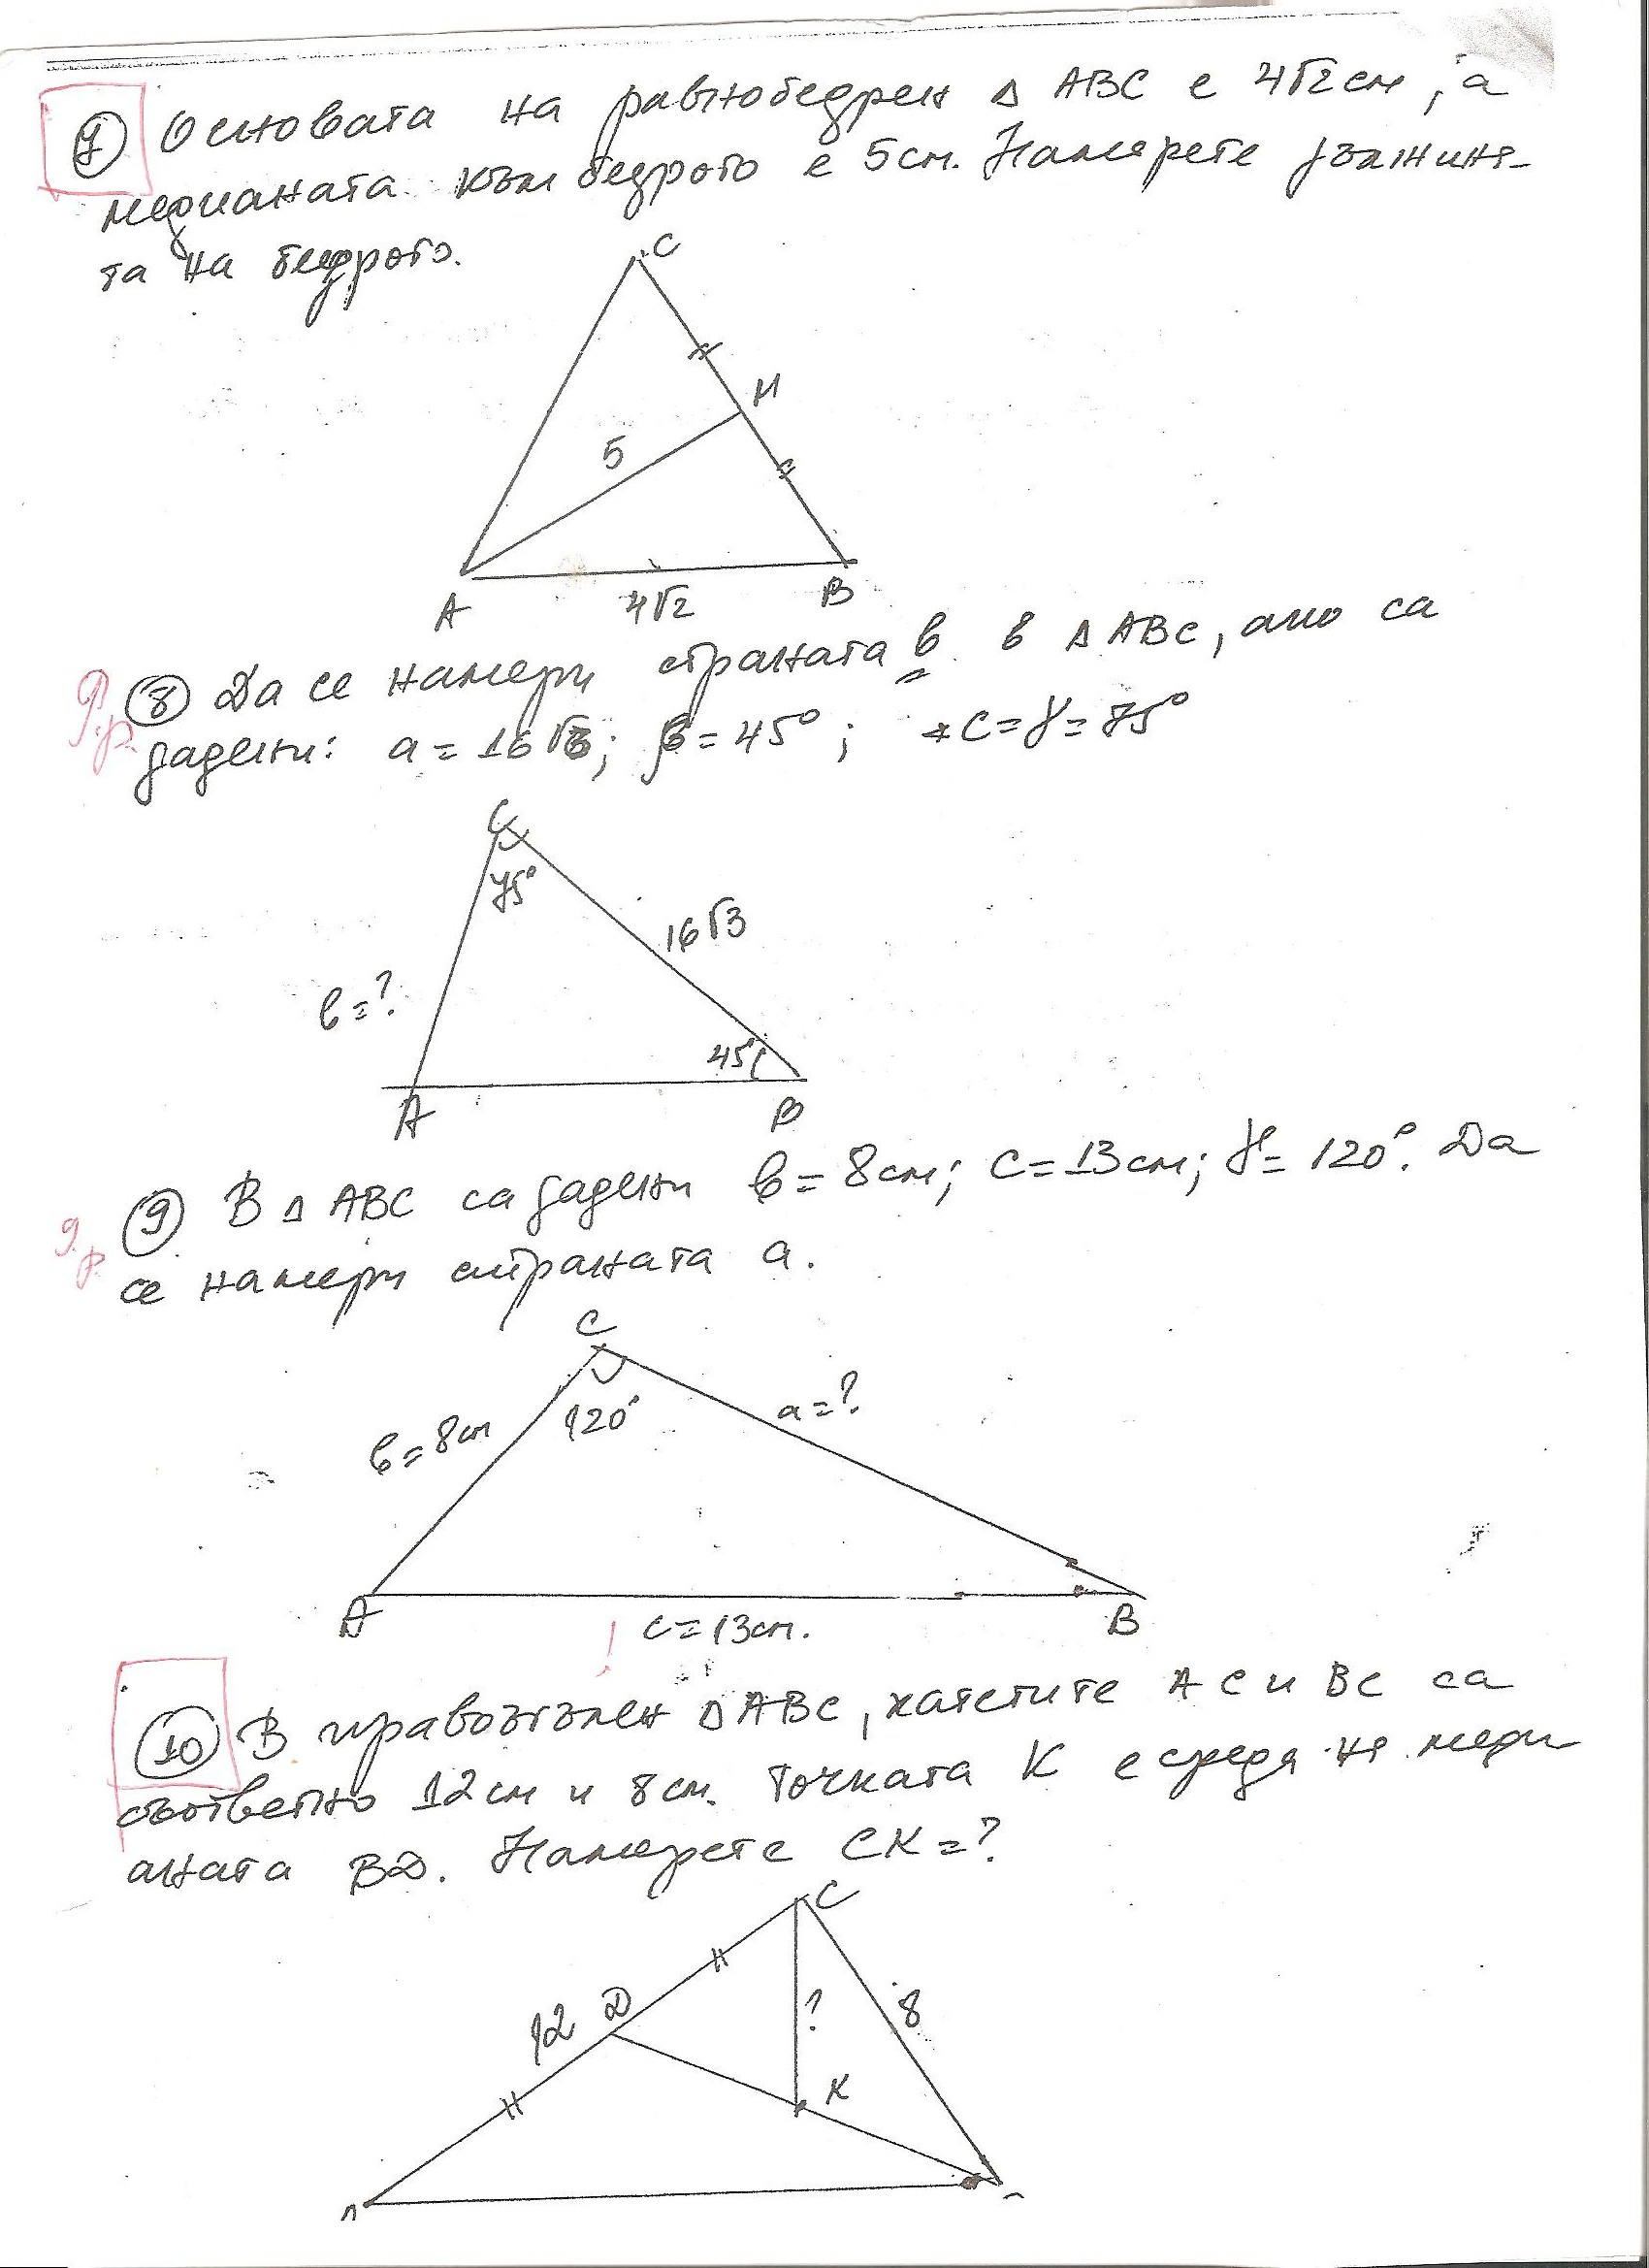 7 Основата на равнобедрен Δ ABC е 4√2 см, а
медианата към бедрото е 5 см. Намерете дължина-
та на бедрото.
C
M
5
A
4√2
B
8 Да се намери страната b в Δ ABC, ако са
дадени: a = 16√3; β = 45°; ∢C = γ = 75°
C
75°
16√3
b = ?
45°
A
B
9 В Δ ABC са дадени b = 8 см; c = 13 см; γ = 120°. Да
се намери страната a.
C
b = 8 см
120°
a = ?
A
c = 13 см.
B
10 В правоъгълен Δ ABC, катетите AC и BC са
съответно 12 см и 8 см. Точката K е среда на меди
аната BD. Намерете CK = ?
C
12
D
?
8
K